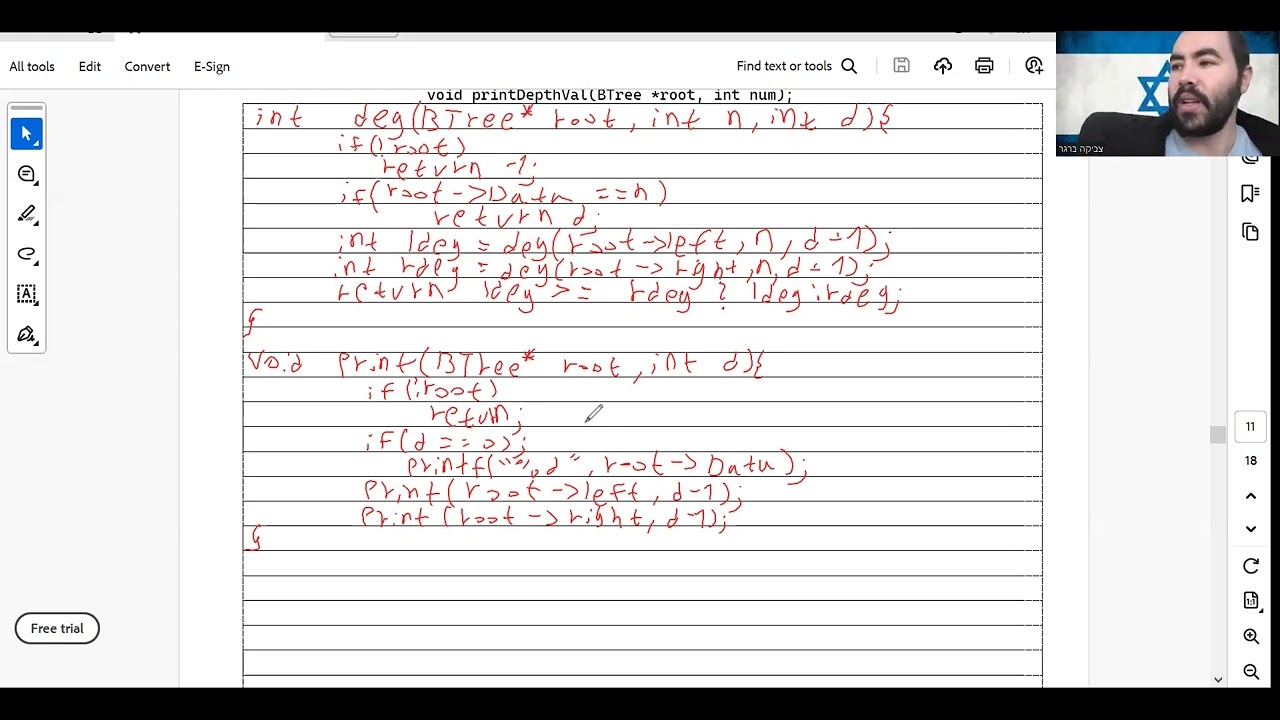 All tools Edit Convert E-Sign Find text or tools
צביקה ברגר
void printDepthVal(BTree *root, int num);
int deg(BTree* root, int n, int d){
if(!root)
return -1;
if(root->Data ==n)
return d;
int ldeg = deg(root->left, n, d+1);
int rdeg = deg(root->right, n, d+1);
return ldeg >= rdeg ? ldeg:rdeg;
}
void print(BTree* root, int d){
if(!root)
return;
if(d == 0);
printf("%d", root->Data);
print(root->left, d-1);
print(root->right, d-1);
}
11
18
1:1
Free trial